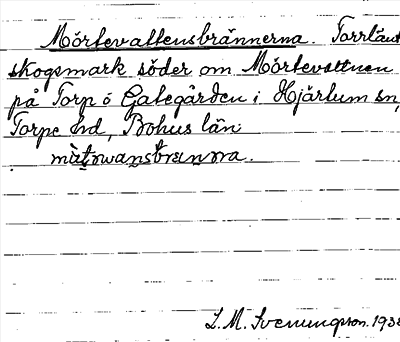 Mörtevattensbrännerna. Torrländ
skogsmark söder om Mörtevattnen
på Torp ö Gategården i Hjärtum sn,
Torpe hd, Bohus län
L. M. Svenungsson. 1938